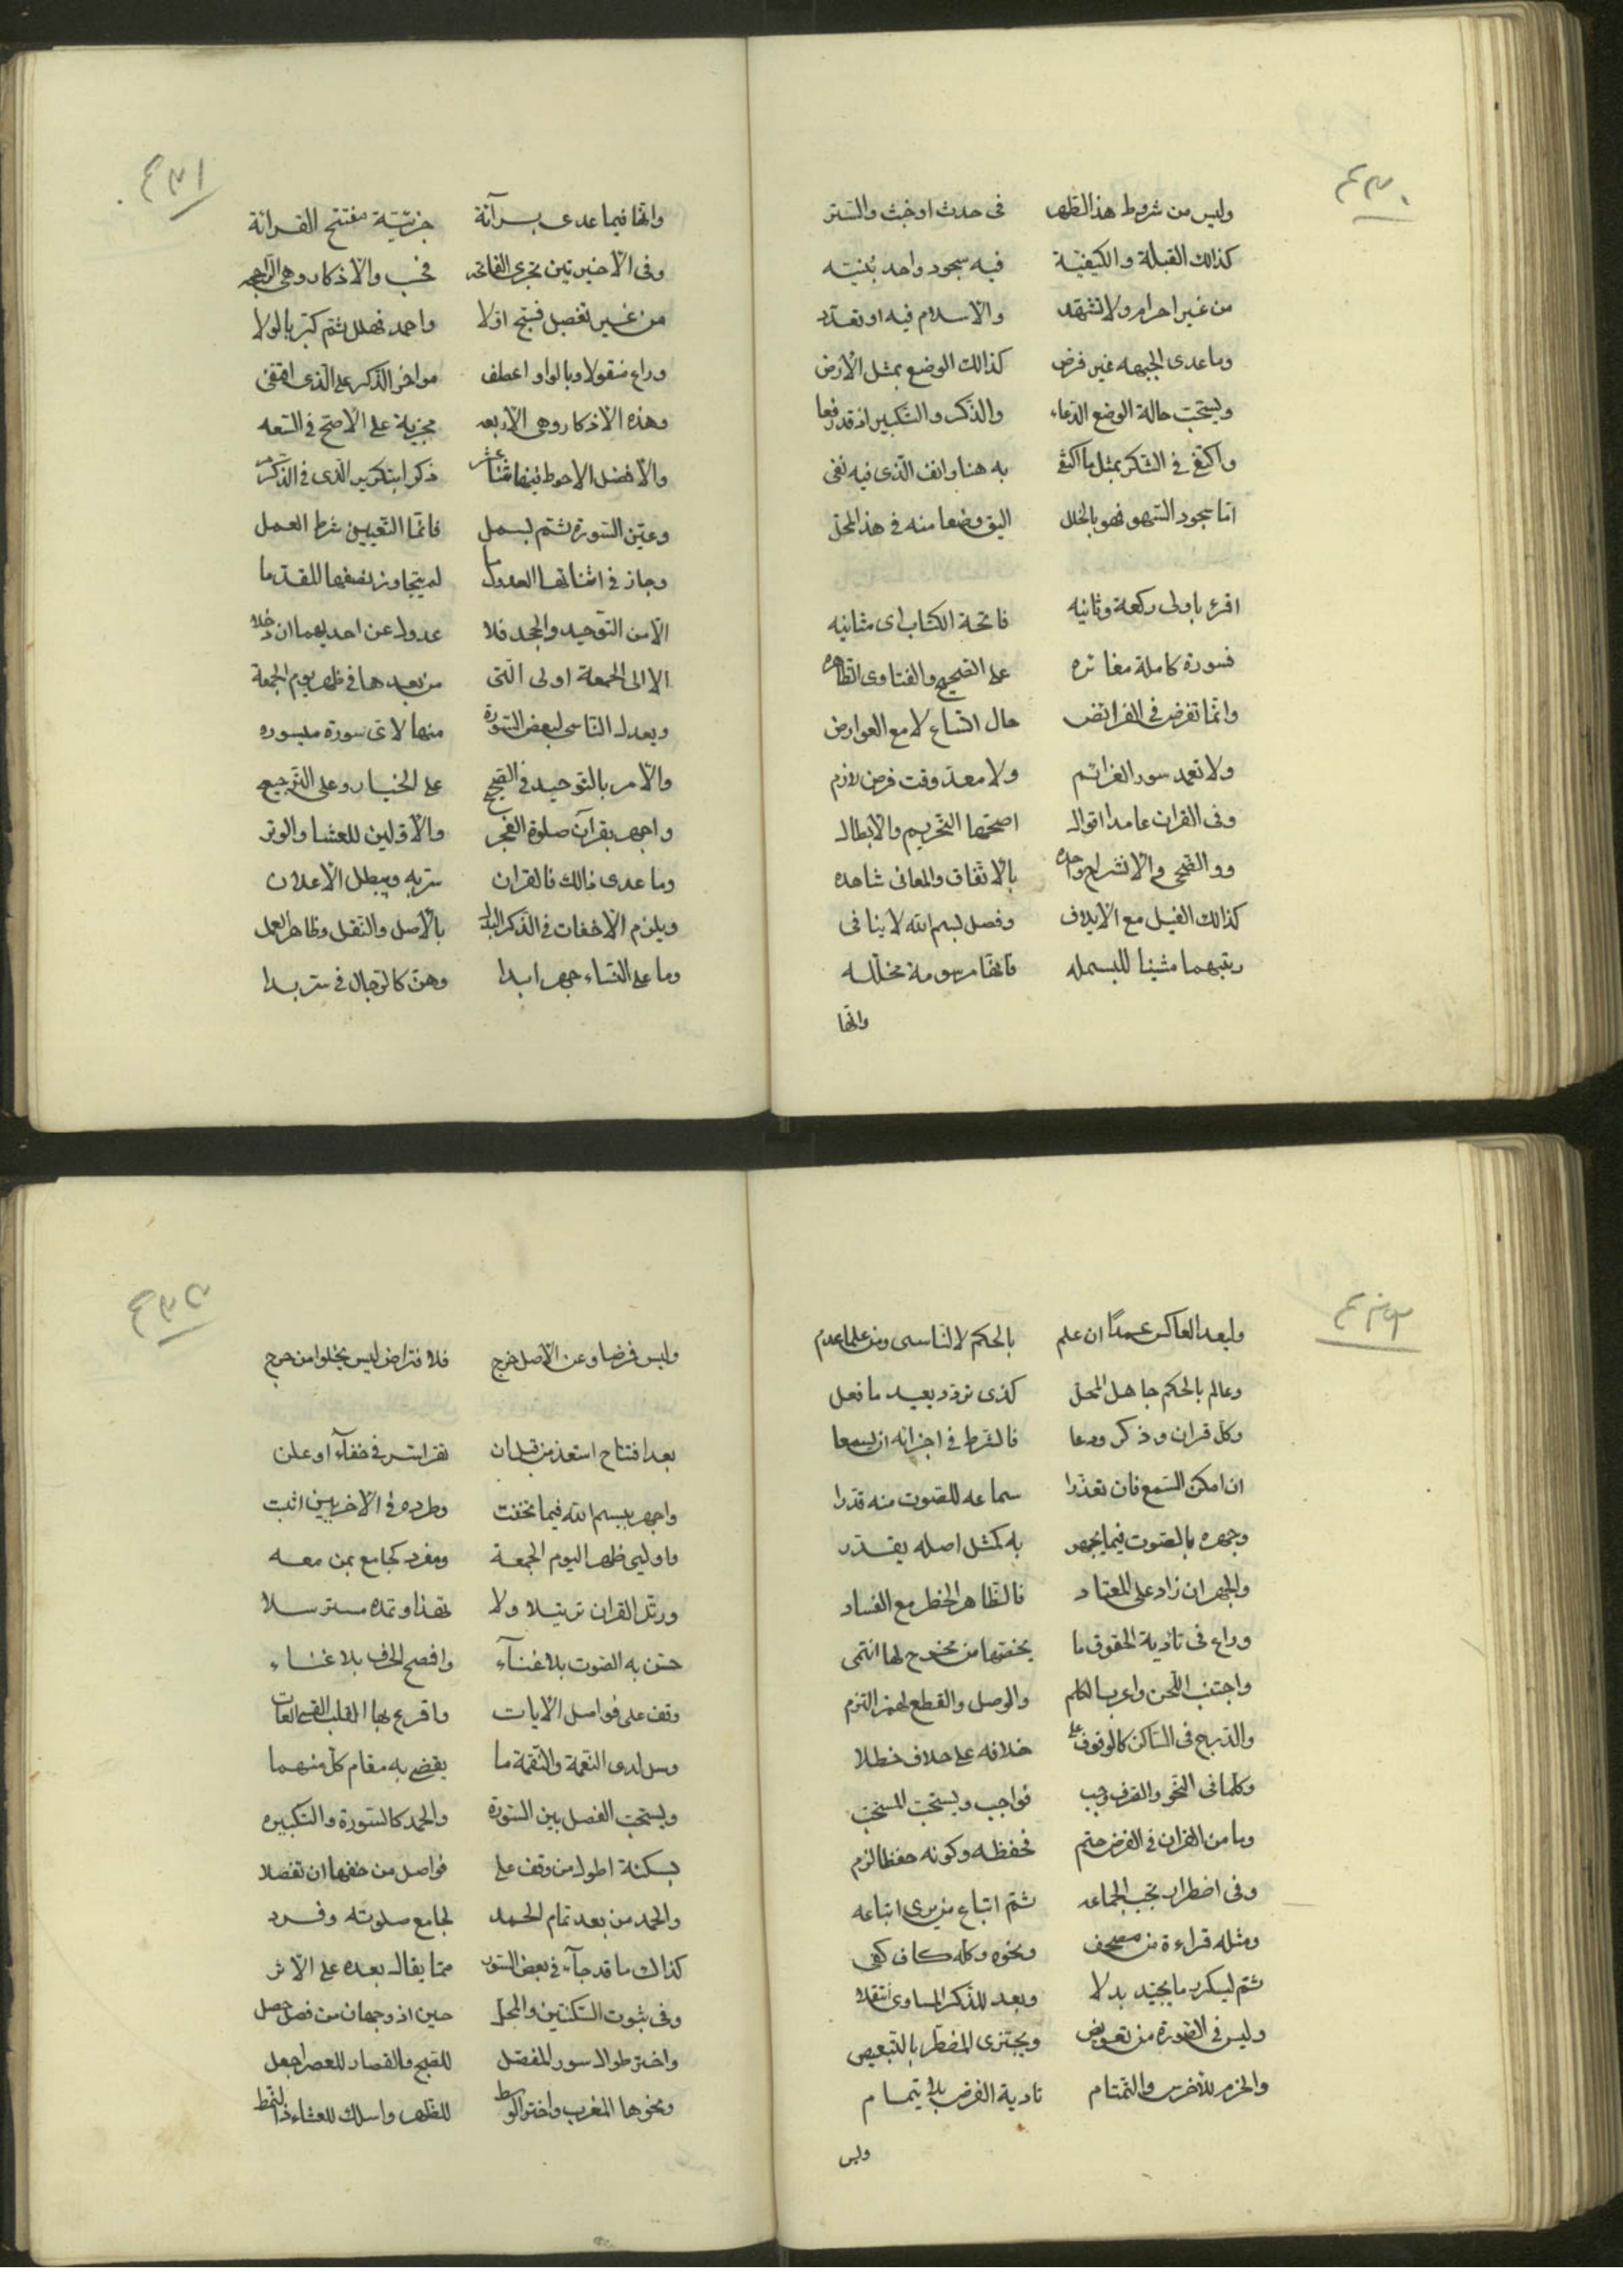 وليس من شروط هذا الطهر في حدث او خبث والستر
كذلك القبلة والكيفية فيه سجود واحد بنيته
من غير احرام ولا تشهد والا سلام فيه او تعدد
وما عدى الجبهه غير فرض كذلك الوضع بمثل الأرض
ويستحب حالة الوضع الدعاء والذكر والتكبير اذ قد رفعا
واكتف في الشكر بمثل ما اكتفى به هنا وانف الذى فيه نفى
اما سجود السهو فهو بالخلل اليق وضعا منه في هذا المحل
اقرء باولى ركعة وثانيه فاتحة الكتاب اى مثانيه
فسورة كاملة مغائره على الصحيح والفتاوى الظاهره
وانما تفرض في الفرائض حال اتساع لا مع العوارض
ولا تعمد سور العزائم ولا معد وقت فرض لازم
وفى القران عامدا اقوال اصحها التحريم والابطال
ووالضحى والانشراح واحده بالاتفاق والمعانى شاهده
كذلك الفيل مع الايلاف وفصل بسم الله لا ينافى
رتبهما مثبتا للبسمله فانها مرسومة مخلله
وانها
وانها فيما عدى برآئة جزئية مفتتح القرائة
وفى الأخيرتين تجزى الفاتحه فحسب والأذكار وهى الراجحه
من غير تفصيل فسبح اولا واحمد فهلل ثم كبر بالولا
وراع منقولا وبالواو اعطف مواخر الذكر على الذى اقتفى
وهذه الاذكار وهى الأربعه مجزية على الاصح في السعه
والأفضل الاحوط فيها اثنا عشر ذكرا بتكرير الذى في الذكر مر
وعين السورة ثم بسمل فانما التعيين شرط العمل
وجاز في اثنائها العدول ما لم يتجاوز نصفها للقدما
الا من التوحيد والجحد فلا عدول عن احديهما ان دخلا
الا الى الجمعة او لى التى من بعدها في ظهر يوم الجمعة
ويعدل الناسى لبعض السورة منها لاى سورة ميسوره
والأمر بالتوحيد في الصبح على الخيار وعلى الترجيع
واجهر بقرآن صلوة الفجر والأولين للعشا والوتر
وما عدى ذالك فالقران سر به ويبطل الأعلان
ويلزم الاخفات في الذكر البدل بالأصل والنقل وظاهر العمل
وما على النساء جهر ابدا وهن كالرجال في سر بدا
وليعد العاكس عمدًا ان علم بالحكم لا الناسى ومن علما عدم
وعالم بالحكم جاهل المحل كذى تردد يعيد ما فعل
وكل قران وذكر ودعا فالشرط في اجزائه ان يسمعا
ان امكن السمع فان تعذرا سماعه للصوت منه قدرا
وجهره بالصوت فيما يجهر به كمثل اصله يقدر
والجهر ان زاد على المعتاد فالظاهر الحظر مع الفساد
وراع فى تادية الحقوق ما يخصها من مخرج لها انتمى
واجتنب اللحن واعرب الكلم والوصل والقطع لهمز التزم
والدرج فى الساكن كالوقوف على خلافه على خلاف خطلا
وكلما فى النحو والصرف وجب فواجب ويستحب المستحب
وما من القران في الفرض حتم فحفظه وكونه حفظا لزم
وفى اضطرار تجب الجماعه ثم اتباع من يرى اتباعه
ومثله قراءة من مصحف ونحوه وكله كاف كفى
ثم ليكرر ما يجيد بدلا وبعد للذكر المساوى انتقلا
وليس في الصورة من تعويض ويجتزى المضطر بالتبعيض
والزم للأخرس والتمتام تادية الفرض بلا تمام
وليس
وليس فرضا وعن الأصل خرج فلافتراض ليس يخلوا من حرج
بعد افتتاح استعذ من قبل ان تقرا بسر في خفاء او علن
واجهر ببسم الله فيما تخفت وطرده في الأخريين اثبت
واوليى ظهر اليوم الجمعة ومفرد كجامع بمن معه
ورتل القران ترتيلا ولا تهذا وتمده مسترسلا
حسن به الصوت بلا غنآء وافصح الحرف بلا غشاء
وقف على فواصل الايات واقرع بها القلب القسى العات
وسل لدى النعمة والنقمة ما يقضى به مقام كل منهما
ويستحب الفصل بين السورة والحمد كالسورة والتكبيره
بسكتة اطول من وقف على فواصل من حقها ان تفصلا
والحمد من بعد تمام الحمد لجامع صلوته وفرد
كذاك ما قد جآء في بعض السور مما يقال بعده على الأثر
وفى ثبوت السكتتين والمحل حين اذ وجهان من فصل حصل
واختر طوال سور المفصل للصبح والقصار للعصر اجعل
ونحوها المغرب واختر الوسط للظهر واسلك للعشاء ذا النمط